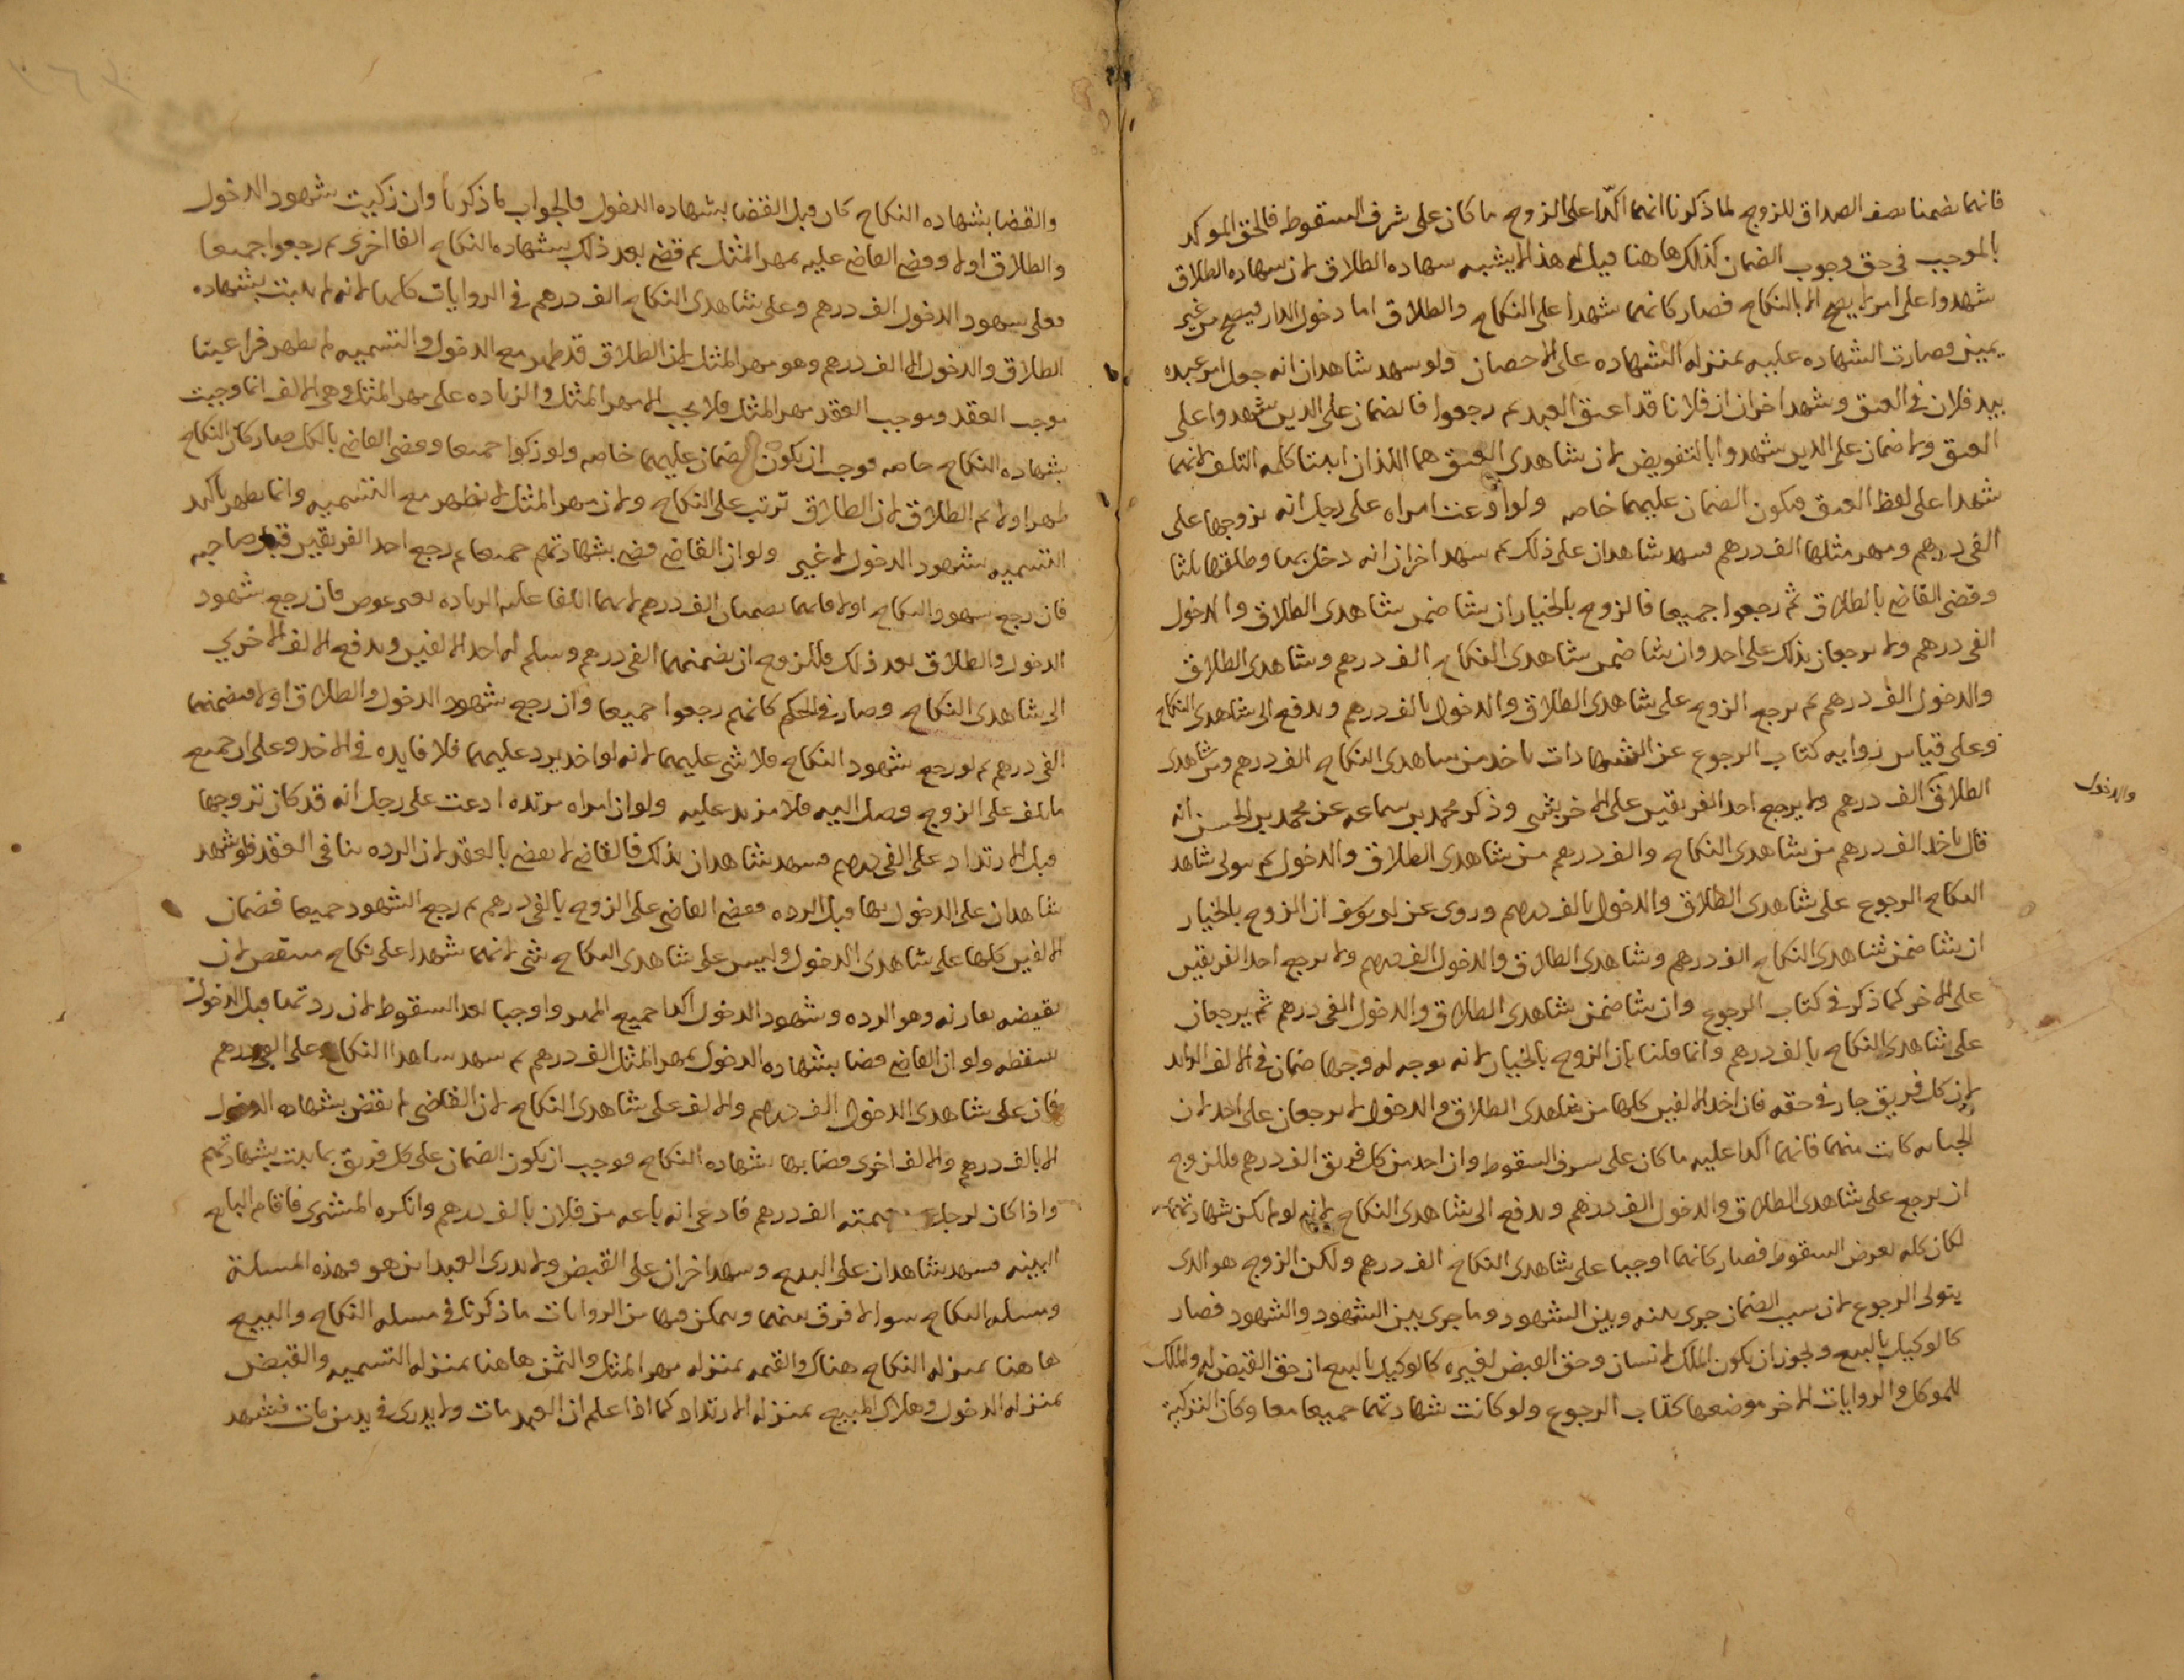 فانهما يضمنا نصف الصداق للزوج لما ذكرنا انهما اكدا على الزوج ما كان على شرف السقوط فالحق الموكد
بالموجب في حق وجوب الضمان كذلك ها هنا قيل له هذا لا يشبه شهاده الطلاق لان شهاده الطلاق
شهدوا على امر لا يصح الا بالنكاح فصار كانهما شهدا على النكاح والطلاق اما دخول الدار فيصح من غير
يمين فصارت الشهاده عليه بمنزله الشهاده على الاحصان ولو شهد شاهدان انه جعل امر عبده
بيد فلان في العتق وشهد اخران ان فلانا قد اعتق العبد ثم رجعوا فالضمان على الذين شهدوا على
العتق ولا ضمان على الذين شهدوا بالتفويض لان شاهدى العتق هما اللذان اثبتا كلمه التلف لانهما
شهدا على لفظ العتق فيكون الضمان عليهما خاصه ولو ادعت امراه على رجل انه تزوجها على
الفى درهم ومهر مثلها الف درهم فشهد شاهدان على ذلك ثم شهد اخران انه دخل بها وطلقها ثلثا
وقضى القاضى بالطلاق ثم رجعوا جميعا فالزوج بالخيار ان شا ضمن شاهدى الطلاق والدخول
الفى درهم ولا يرجعان بذلك على احد وان شا ضمن شاهدى النكاح الف درهم وشاهدى الطلاق
والدخول الف درهم ثم يرجع الزوج على شاهدى الطلاق والدخول بالف درهم ويدفع الى شاهدى النكاح
وعلى قياس روايه كتاب الرجوع عن الشهادات ياخذ من شاهدى النكاح الف درهم ومن شاهدى
الطلاق الف درهم ولا يرجع احد الفريقين على الاخر بشى وذكر محمد بن سماعه عن محمد بن الحسن انه
والدخول
قال ياخذ الف درهم من شاهدى النكاح والف درهم من شاهدى الطلاق والدخول ثم يتولى شاهد
النكاح الرجوع على شاهدى الطلاق والدخول بالف درهم وروى عن ابى يوسف ان الزوج بالخيار
ان شا ضمن شاهدى النكاح الف درهم وشاهدى الطلاق والدخول الف درهم ولا يرجع احد الفريقين
على الاخر كما ذكر في كتاب الرجوع وان شا ضمن شاهدى الطلاق والدخول الفى درهم ثم يرجعان
على شاهدى النكاح بالف درهم وانما قلنا بان الزوج بالخيار لانه توجه له وجها ضمان في الالف الزايد
لان كل فريق جار في حقه فان اخذ الالفين كلها من شاهدى الطلاق والدخول لا يرجعان على احد لان
الجنايه كانت منهما فانهما اكدا عليه ما كان على شرف السقوط وان اخذ من كل فريق الف درهم فللزوج
ان يرجع على شاهدى الطلاق والدخول الف درهم ويدفع الى شاهدى النكاح لانه لو لم تكن شهادتهما
لكان كله بعرض السقوط فصار كانهما اوجبا على شاهدى النكاح الف درهم ولكن الزوج هو الذى
يتولى الرجوع لان سبب الضمان جرى بينه وبين الشهود وما جرى بين الشهود والشهود فصار
كالوكيل بالبيع ويجوز ان يكون الملك لانسان وحق القبض لغيره كالوكيل بالبيع ان حق القبض له والملك
للموكل والروايات الاخر موضعها كتاب الرجوع ولو كانت شهادتهما جميعا معا وكان التزكية
والقضا بشهاده النكاح كان قبل القضا بشهاده الدخول فالجواب لما ذكرنا وان زكيت شهود الدخول
والطلاق اولا وقضى القاضى عليه بمهر المثل ثم قضى بعد ذلك بشهاده النكاح الفا اخرى ثم رجعوا جميعا
فعلى شهود الدخول الف درهم وعلى شاهدى النكاح الف درهم في الروايات كلها لانه لم يثبت بشهاده
الطلاق والدخول الا الف درهم وهو مهر المثل لان الطلاق قد ظهر مع الدخول والتسميه لم تظهر فراعينا
موجب العقد وموجب العقد مهر المثل فلا يجب الا مهر المثل والزياده على مهر المثل وهى الالف انما وجبت
بشهاده النكاح خاصه فوجب ان يكون الضمان عليهما خاصه ولو زكوا جميعا وقضى القاضى بالكل صار كان النكاح
ظهر اولا ثم الطلاق لان الطلاق ترتب على النكاح ولان مهر المثل لا يظهر مع التسميه وانما يظهر تاكيد
التسميه بشهود الدخول لا غير ولو ان القاضى قضى بشهادتهم جميعا ثم رجع احد الفريقين قبل صاحبه
فان رجع شهود النكاح اولا فانهما يضمنان الف درهم لانهما اتلفا عليه الزياده بغير عوض فان رجع شهود
الدخول والطلاق بعد ذلك فللزوج ان يضمنهما الفى درهم وسلم له احد الالفين ويدفع الالف الاخرى
الى شاهدى النكاح وصار في الحكم كانهم رجعوا جميعا وان رجع شهود الدخول والطلاق اولا فيضمنهما
الفى درهم ثم لو رجع شهود النكاح فلا شى عليهما لانه لو اخذ يرد عليهما فلا فايده في الاخذ وعلى ان جميع
ما تلف على الزوج وصل اليه فلا مزيد عليه ولو ان امراه مرتده ادعت على رجل انه قد كان تزوجها
قبل الارتداد على الفى درهم فشهد شاهدان بذلك فالقاضى لا يقضى بالعقد لان الرده تنافى العقد فلو شهد
شاهدان على الدخول بها قبل الرده فقضى القاضى على الزوج بالفى درهم ثم رجع الشهود جميعا فضمان
الالفين كلها على شاهدى الدخول وليس على شاهدى النكاح شى لانهما شهدا على نكاح منتقض لان
نقيضه يقارنه وهو الرده وشهود الدخول اكدا جميع المهر واوجبا بعد السقوط لان ردتها قبل الدخول
تسقطه ولو ان القاضى قضا بشهاده الدخول بمهر المثل الف درهم ثم شهد شاهدا النكاح على الفى درهم
فان على شاهدى الدخول الف درهم والالف على شاهدى النكاح لان القاضى لم يقض بشهاده الدخول
الا بالف درهم والالف اخرى قضا بها بشهاده النكاح فوجب ان يكون الضمان على كل فريق بما يثبت بشهادتهم
واذا كان لرجل قيمته الف درهم فادعى انه باعه من فلان بالف درهم وانكره المشترى فاقام البايع
البينه فشهد شاهدان على البيع وشهد اخران على القبض ولا يدرى العبد اين هو فهذه المسلة
ومسله النكاح سوا لا فرق بينهما ويمكن فيها من الروايات ما ذكرنا في مسله النكاح والبيع
ها هنا بمنزله النكاح هناك والقيمه بمنزله مهر المثل والثمن ها هنا بمنزله التسميه والقبض
بمنزله الدخول وهلاك المبيع بمنزله الارتداد كما اذا علم ان العبد مات ولا يدرى في يد من مات فشهد